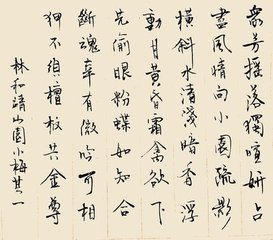 眾芳搖落獨暄妍占
盡風情向小園疏影
橫斜水清淺暗香浮
動月黃昏霜禽欲下
先偷眼粉蝶如知合
斷魂幸有微吟可相
狎不須檀板共金尊
林和靖山園小梅其一